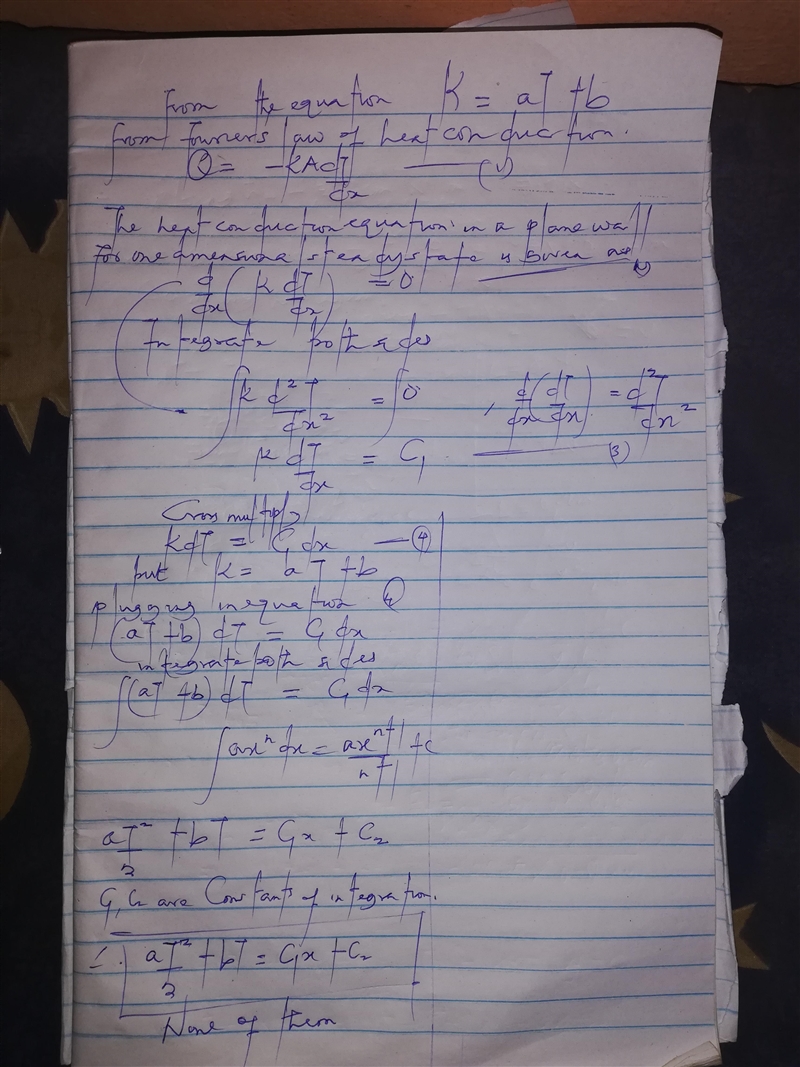 From the equation K = aT + b
from Fouriers law of heat conduction.
Q = -KA dT/dx —— (1)
The heat conduction equation in a plane wall
for one dimensional steady state is given as
d/dx (K dT/dx) = 0
Integrate both sides
∫ K d²T/dx² = ∫ 0 , d/dx (dT/dx) = d²T/dx²
K dT/dx = C₁ —— (3)
Cross multiply
KdT = C₁ dx — (4)
but K = aT + b
plugging in equation 4
(aT + b) dT = C₁ dx
integrate both sides
∫ (aT + b) dT = C₁ dx
∫ axⁿ dx = axⁿ⁺¹/n+1 + c
aT²/2 + bT = C₁x + C₂
C₁, C₂ are Constants of integration.
∴ aT²/2 + bT = C₁x + C₂
None of them